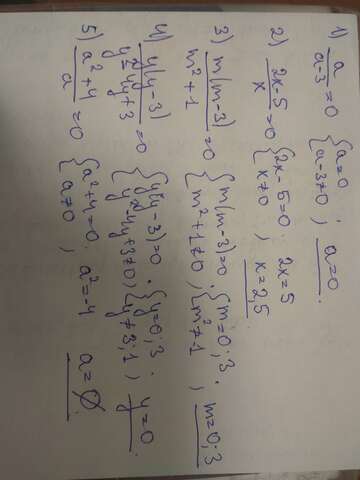 1) a/(a-3) = 0 { a=0 a-3≠0 ; a=0.
2) (2x-5)/x = 0 { 2x-5=0. x≠0 , 2x=5 x=2,5
3) m(m-3)/(m²+1) = 0 { m(m-3)=0 m²+1≠0 ; { m=0;3. m²≠-1 , m=0;3
4) y(y-3)/(y²-4y+3) = 0 { y(y-3)=0. y²-4y+3≠0 , { y=0;3. y≠3;1 , y=0.
5) (a²+4)/a = 0 { a²+4=0. a≠0 ; a²=-4 a=∅.